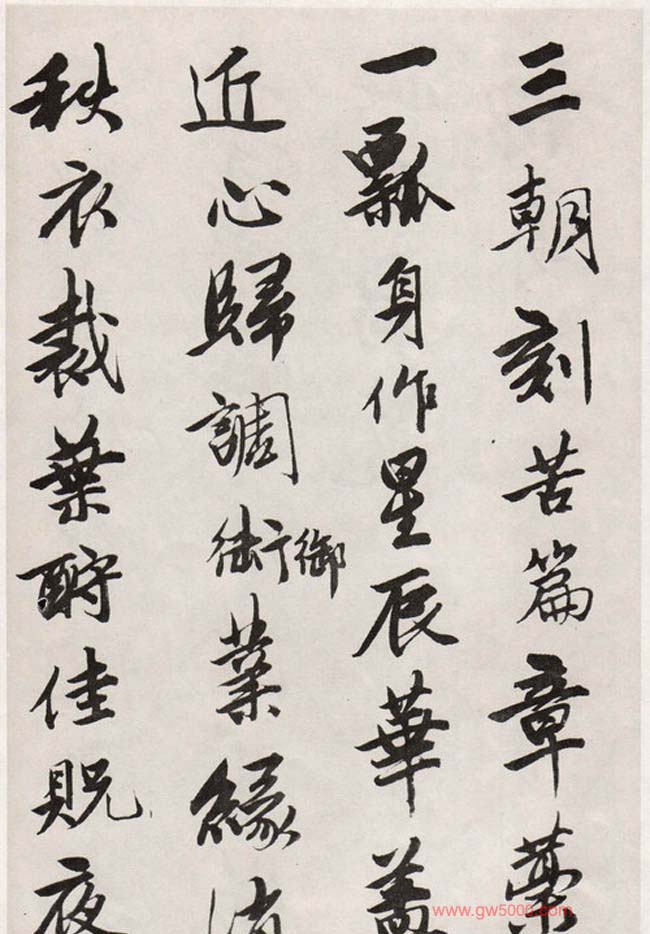 三朝刻苦篇章藁
一瓢身作星辰華蓋
近心歸調術御業緣消
秋衣裁葉酬佳貺夜
www.gw5000.com